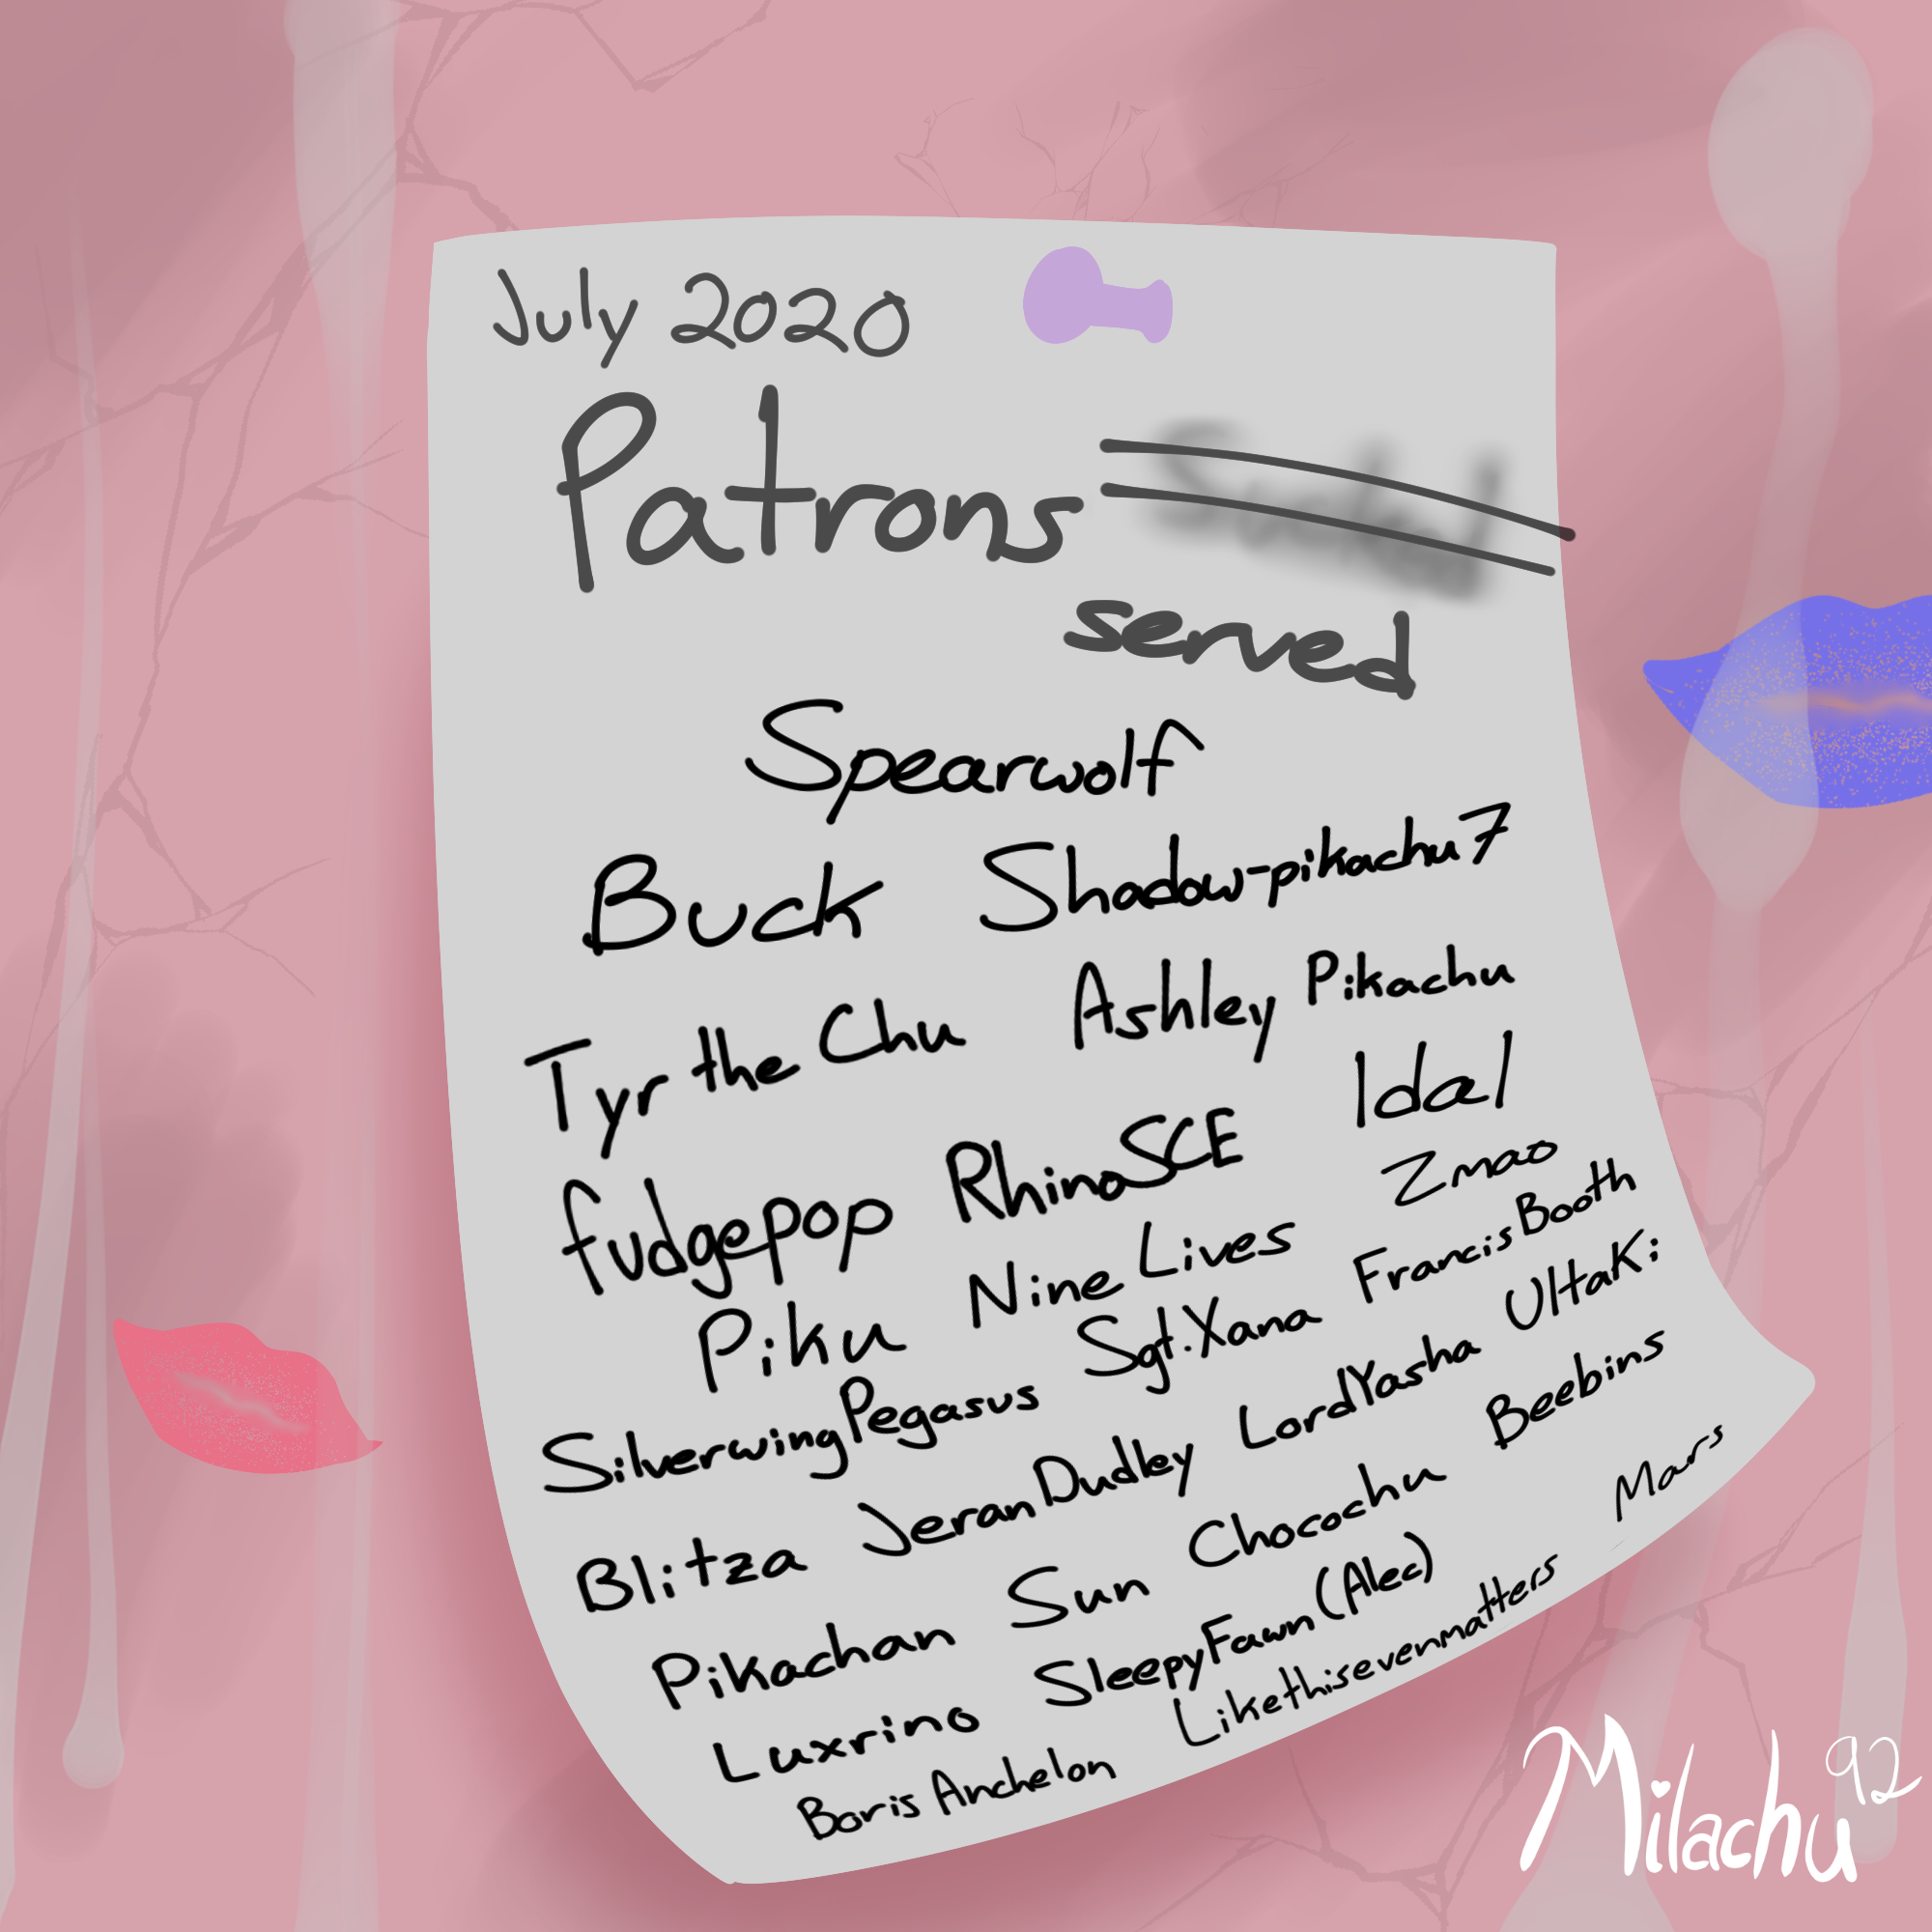 July 2020
Patrons
served
Spearwolf
Buck Shadow-pikachu7
Tyr the Chu Ashley Pikachu
fudgepop RhinoSCE Idal
Piku Nine Lives Zmao
SilverwingPegasus Sgt.Xana FrancisBooth
Blitza JeranDudley LordYasha UltaK:
Pikachan Sun Chocochu Beebins
Luxrino SleepyFawn(Alec) Mars
Boris Anchelon Likethisevenmatters
Milachu92